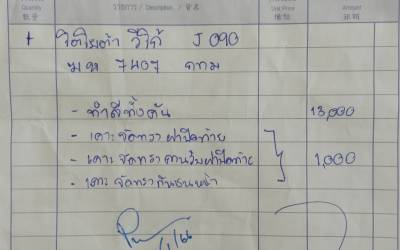 Quantity รายการ / Description / 货名 Unit Price Amount
数量
1 โตโยต้า วีโก้ J 090
ฆห 7407 กทม
- ทำสีทั้งคัน 13,000
- เคาะจัดทราฝาปิดท้าย
- เคาะจัดทราคานในฝาปิดท้าย 1,000
- เคาะจัดทรากันชนหน้า